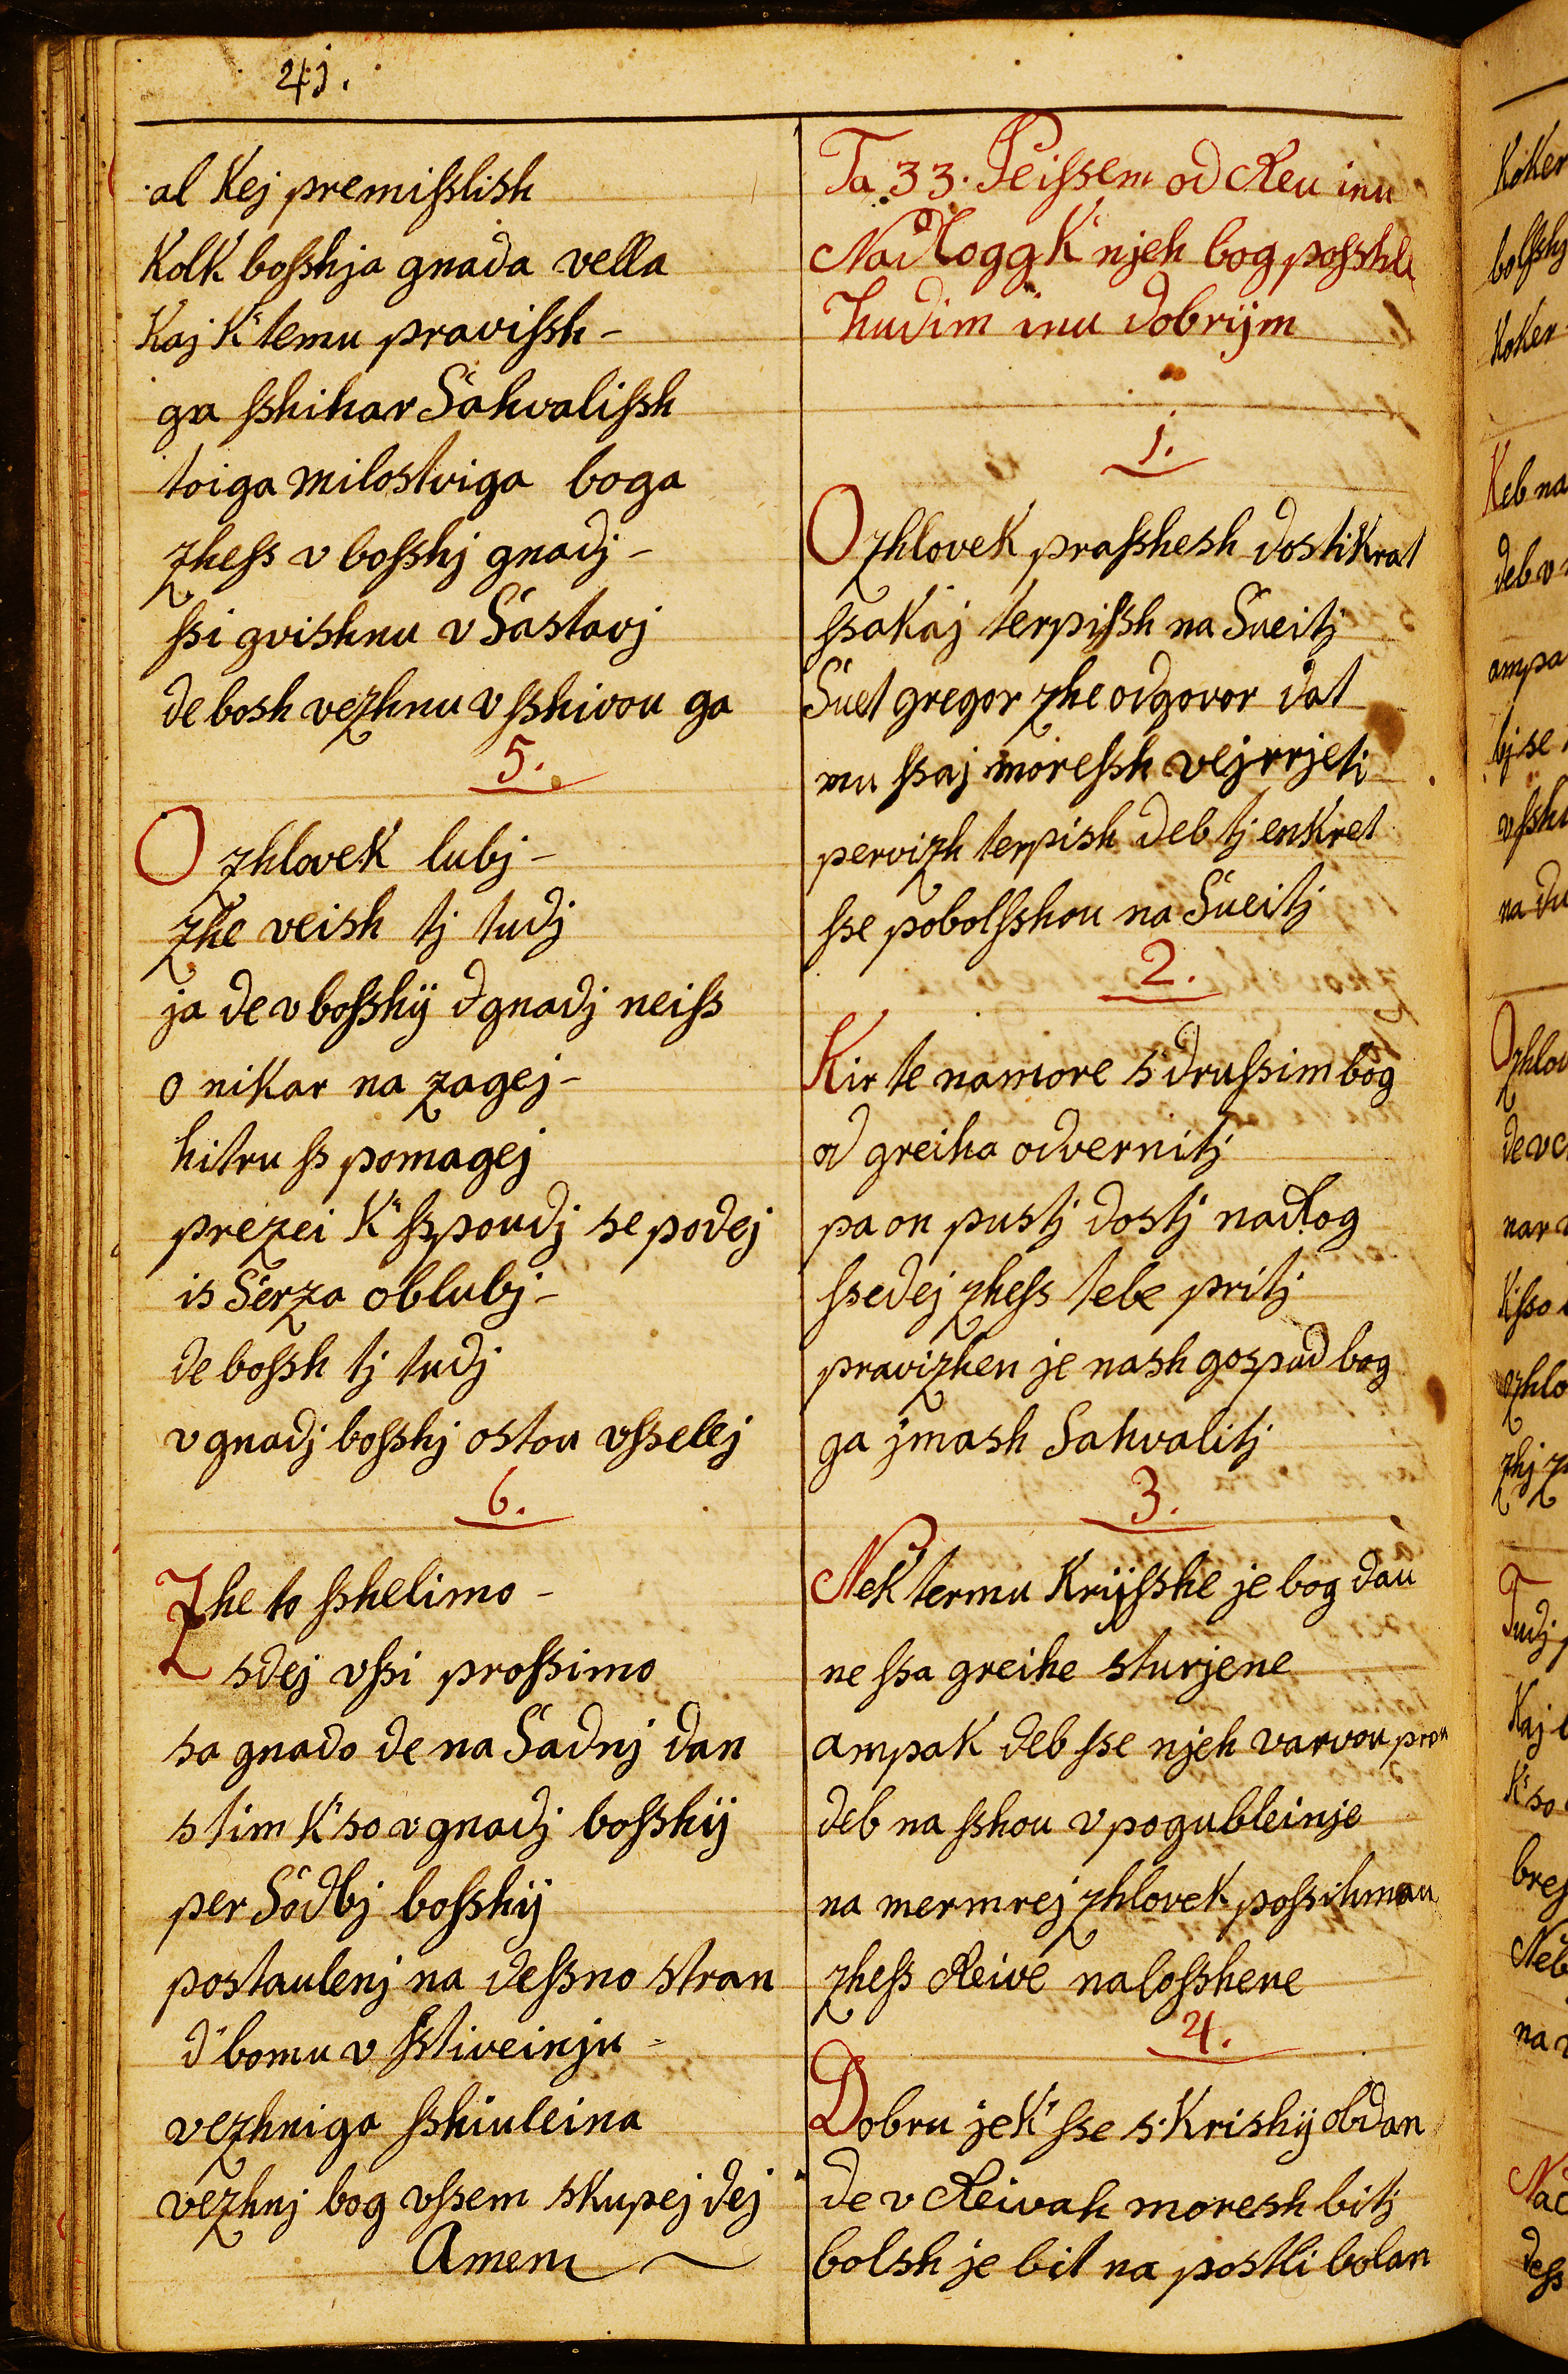 41.
al kej premißlish
Kolk boßhja gnada vella
Kaj K temu pravißh-
ga ßhihar Sahvalißh
toiga milostviga boga
zheß v boßhj gnadj-
ßi gvishnu v Sastavj
de bosh vezhnu v ßhivou ga
5.
O zhlovek lubj-
zhe veish tj tudj
ja de v boßhÿ d gnadj neiß
o nikar na zagej-
hitru ß pomagej
prezei K ßpoudj se podej
is Serza oblubj-
de boßh tj tudj
v gnadj boßhj ostou vßelej
6.
Zhe to ßhelimo-
sdej vßi proßimo
sa gnado de na Sadnj dan
s tim K so v gnadj boßhÿ
per Sodbj boßhÿ
postaulenj na deßno stran
d bomu v ßtiveinju-
vezhniga ßhiuleina
vezhnj bog vßem skupej dej
Amem
Ta 33. Peißem od Reu inu
Nadlogg K njeh bog poßhle
hudim inu dobrÿm
1.
O zhlovek praßhesh dostikrat
ßakaj terpißh na Sueitj
Suet gregor zhe odgovor dat
mu ßaj moreßh vejrrjeti
pervizh terpish deb tj enkret
ße pobolßhou na Sueitj
2.
Kir te na more s drußim bog
od greiha odvernitj
pa on pustj dostj nadlog
ßedej zheß tebe pritj
pravizhen je nash gospud bog
ga jmash Sahvalitj
3.
Nek termu Krÿßhe je bog dau
ne ßa greihe sturjene
ampak deb ße njeh varvou prou
deb na ßhou v pogubleinje
na mermrej zhlovek poßihmau
zheß Reive naloßhene
4.
Dobru je K ße s Krishÿ obdan
de v Reivah moresh bitj
bolsh je bit na postli bolan